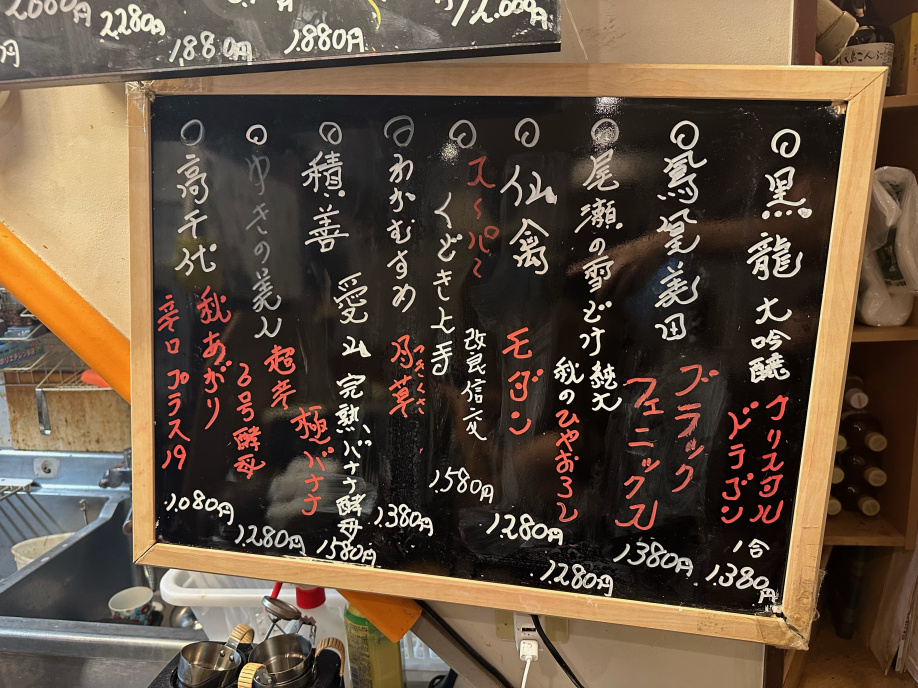 2,280円
1,880円
1,880円
黒龍 大吟醸
クリスタル
ドラゴン
1合
1,380円
鳳凰美田
ブラック
フェニックス
1380円
尾瀬の雪どけ 純大
秋のひやおろし
1280円
仙禽 モダン
1,280円
スーパー
くどき上手
改良信交
1,580円
わかむすめ 月草
つきくさ
1,380円
積善 愛山 完熟バナナ酵母
極バナナ
1580円
ゆきの美人
超辛
6号酵母
1280円
高千代 秋あがり
辛口 プラス19
1,080円